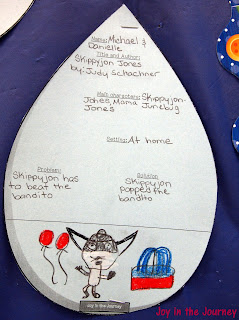 Name: Michael &
Danielle
Title and Author:
Skippyjon Jones
by: Judy Schachner
Main characters: Skippyjon-
Jones, Mama Junebug
Jones
Setting: At home
Problem:
Skippyjon has
to beat the
bandito
Solution
Skippyjon
popped the
bandito
Joy in the Journey
Joy in the Journey